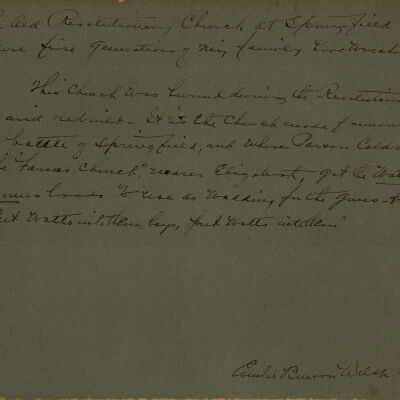 Old Revolutionary Church at Springfield
five generations of my family have
This Church was burned during the Revolution
and rebuilt - It is the Church made famous
battle of Springfield, and where Parson
"Farmer's Church," nearer Elizabeth, got the Watts
books to use as wadding for the guns -
Watts into them, boys, put Watts into them"
Benson Welsh